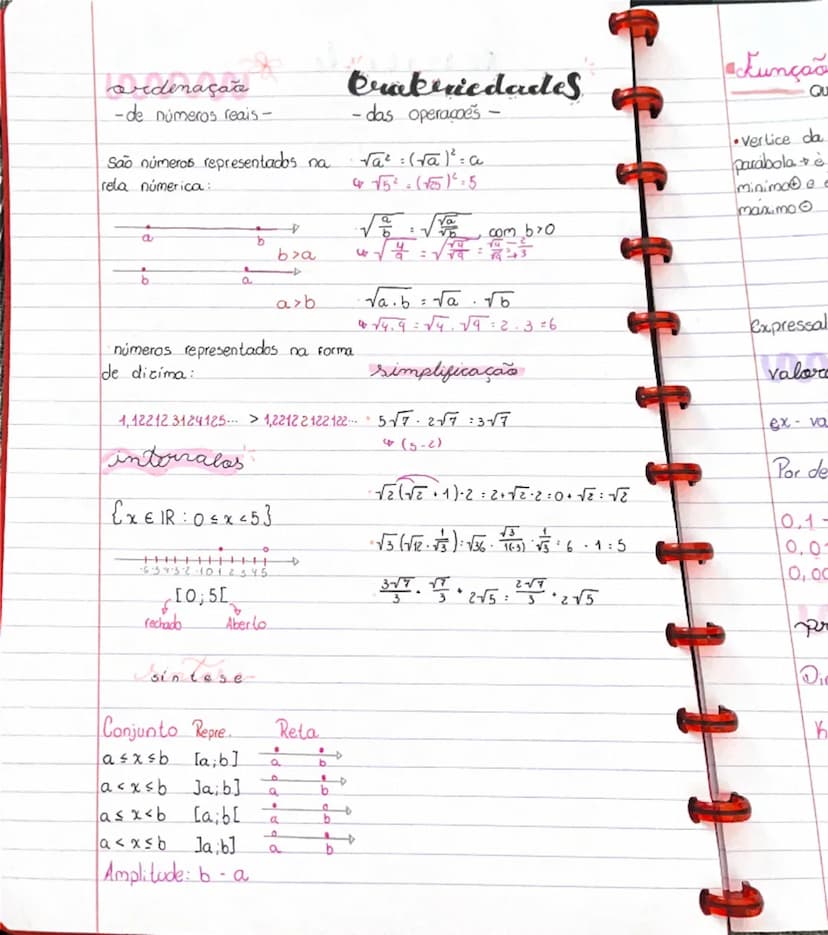 ordenação
- de números reais -
São números representados na
reta númerica:
a b
b > a
b a
a > b
números representados na forma
de dizíma:
1,122123124125... > 1,22122122122...
intervalos
{x ∈ IR : 0 ≤ x < 5}
-6-5-4-3-2-1 0 1 2 3 4 5
[0;5[
fechado Aberto
síntese
Conjunto Repre. Reta
a ≤ x ≤ b [a;b] a b
a < x ≤ b ]a;b] a b
a ≤ x < b [a;b[ a b
a < x ≤ b ]a;b] a b
Amplitude: b - a
- das operações -
√a² = (√a)² = a
↳ √5² = (√25)² = 5
√a/b = √√a/√b, com b > 0
↳ √4/9 = √√4/√9 = √4/√9 = 2/3
√a.b = √a . √b
↳ √4.9 = √4 . √9 = 2 . 3 = 6
simplificação
5√7 - 2√7 = 3√7
↳ (5-2)
√2(√2 + 1) - 2 = 2 + √2 - 2 = 0 + √2 = √2
2√5 = 2√7/3 + 2√5
Função
Qu
• vertice da
parábola → é
minimo⊕ e
máximo⊖
Expressa
valor
ex - va
Por de
0,1 -
0,0
0,00
pr
Di